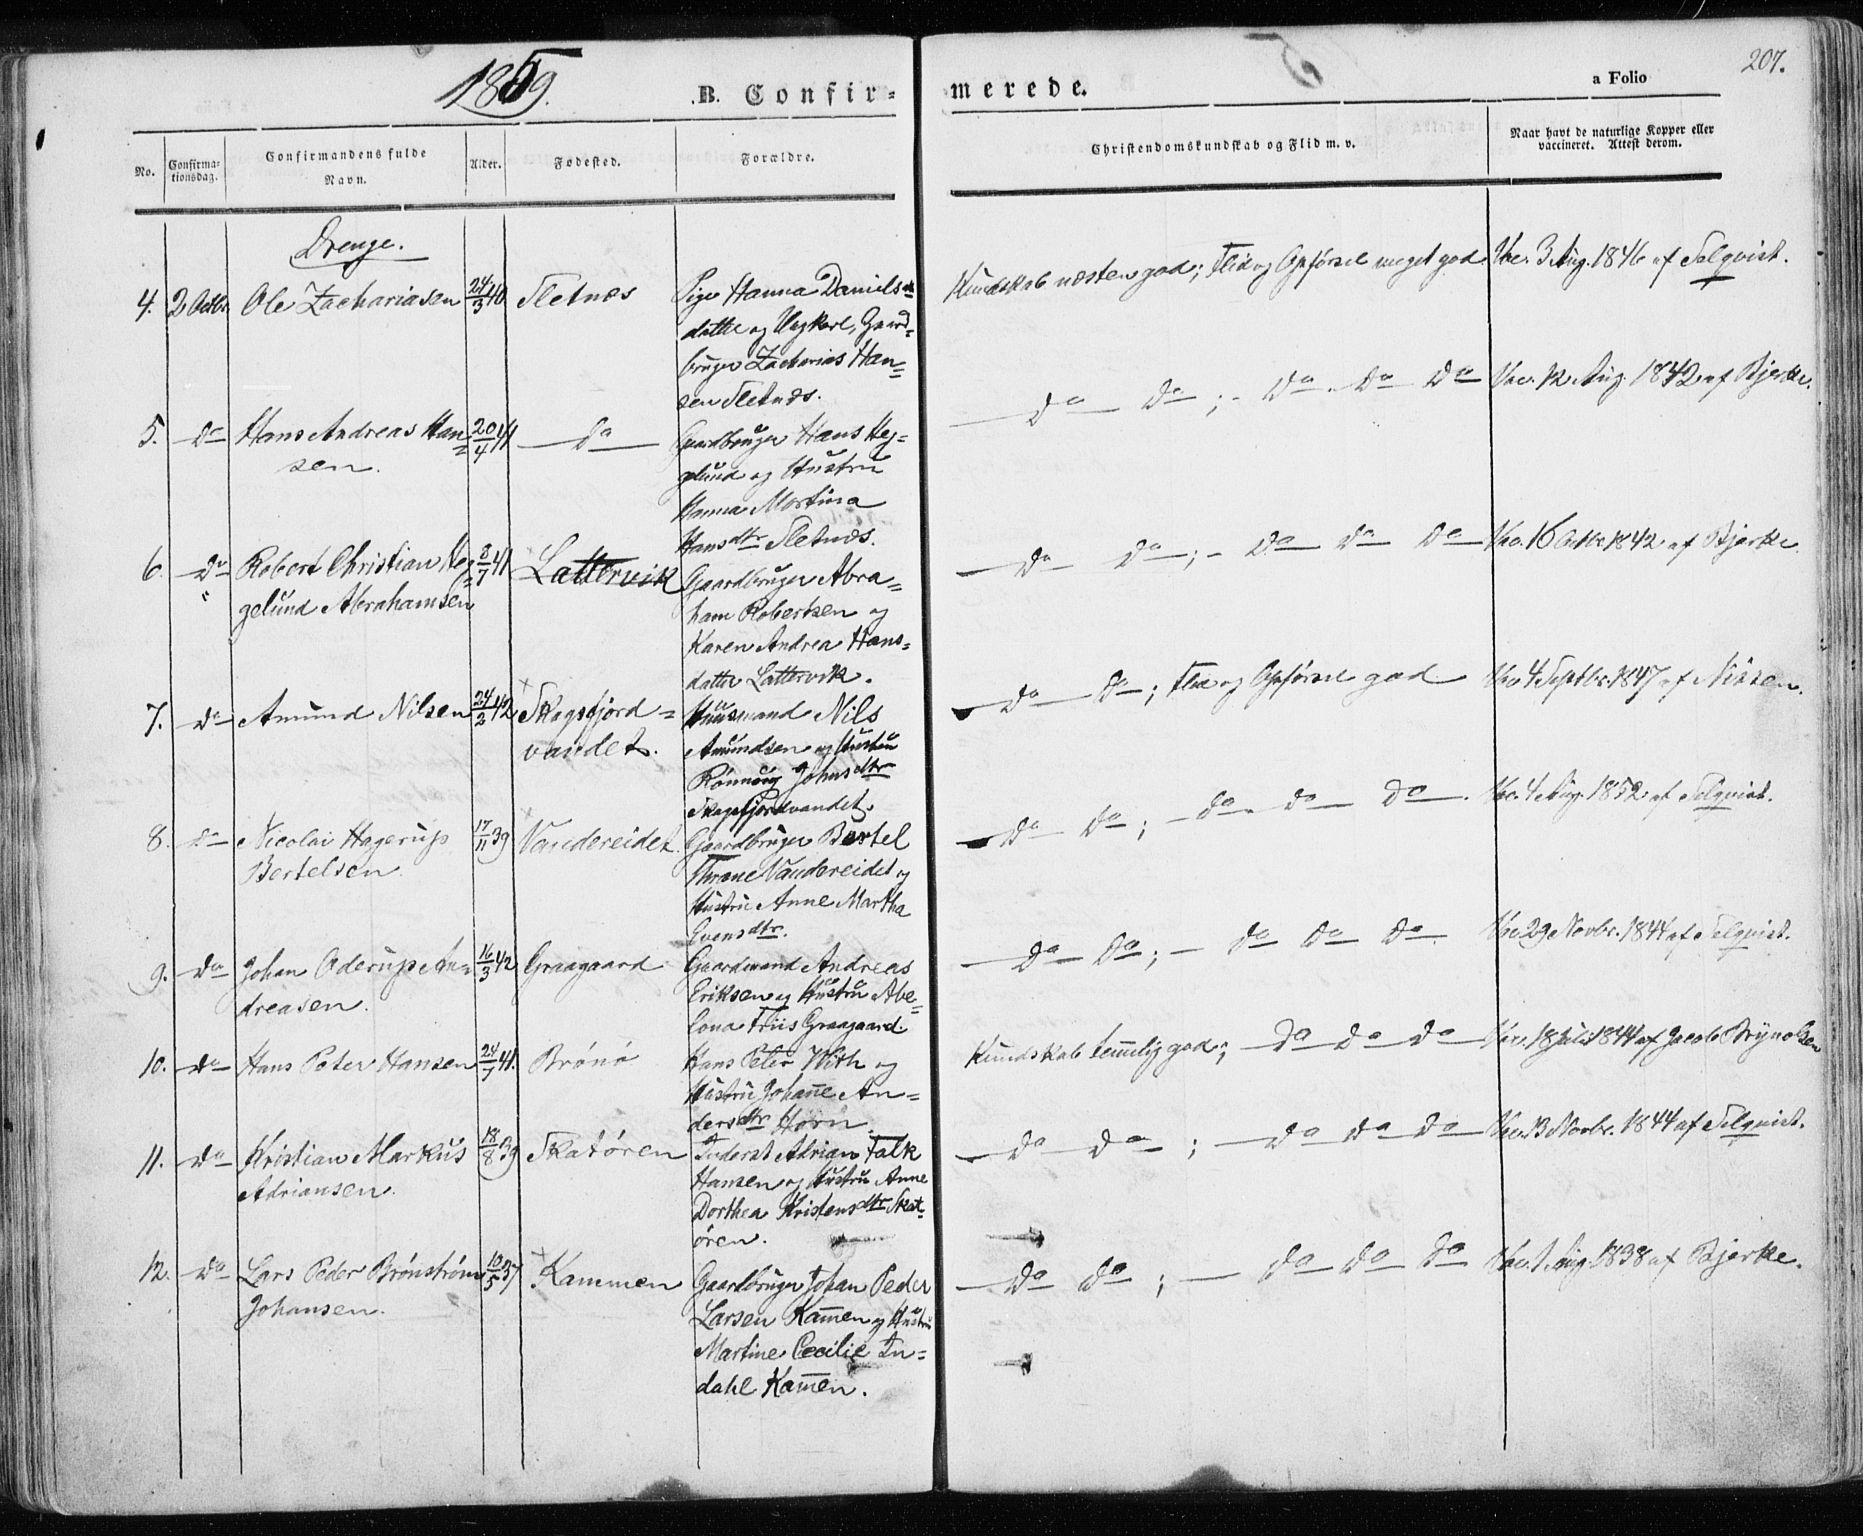 1859.
B. Confir-
merede.
a Folio
207.
No.
Confirma-
tionsdag.
Confirmandens fulde
Navn.
Alder.
Fødested.
Forældre.
Christendomskundskab og Flid m. v.
Naar havt de naturlige Kopper eller
vaccineret. Attest derom.
Drenge.
4. 2 Octbr. Ole Zachariasen 24/3 40 Sletnæs
Pige Hanna Daniels
datter og Ungkarl, Gaard=
bruger Zacharias Han=
sen Sletnæs.
Kundskab næsten god; Flid og Opførsel meget god. Vac. 3 Aug. 1846 af Selqvist.
5. do Hans Andreas Han= 20/4 41 do
sen.
Gaardbruger Hans Heg=
gelund og Hustru
Hanna Martina
Hansdtr Sletnæs.
do do; - do do do Vac. 12 Aug. 1842 af Bjerke.
6. do Robert Christian He= 8/7 41 Lattervik
gelund Abrahamsen
Gaardbruger Abra=
ham Robertsen og
Karen Andrea Hans=
datter Lattervik.
do do; - do do do Vac. 16 Octbr 1842 af Bjerke.
7. do Amund Nilsen 24/2 42 Skogsfjord=
vandet.
Huusmand Nils
Amundsen og Hustru
Rønnaug Johnsdtr
Skogsfjordvandet.
do do; Flid og Opførsel god Vac 4 Septbr. 1847 af Nissen.
8. do Nicolai Hagerup 17/11 39 Vandereidet.
Bertelsen.
Gaardbruger Bertel
Thrane Vandereidet og
Hustru Anne Martha
Evensdtr.
do do; - do do do. Vac. 4 Aug. 1852 af Selqvist.
9. do Johan Oderup An= 16/3 42 Graagaard
dreasen.
Gaardmand Andreas
Eriksen og Hustru Abe=
lona Friis Graagaard.
do do; - do do do. Vac 29 Novbr. 1844 af Selqvist.
10. do Hans Peter Hansen 24/7 41. Brönö
Hans Peter With og
Hustru Johanne An=
dersdtr Horn.
Kundskab temmelig god; do do do Vac. 18 Juli 1844 af Jacob Brynolsen
11. do Kristian Markus 18/8 39 Skatøren
Adriansen.
Inderst Adrian Falk
Hansen og Hustru Anne
Dorthea Kristensdtr Skat=
øren.
do do; - do do do Vac. 13 Novbr. 1844 af Selqvist.
12. do Lars Peder Brønstrøm 10/5 37 Kammen
Johansen.
Gaardbruger Johan Peder
Larsen Kammen og Hustru
Martine Cecilie In=
dahl Kammen.
do do; - do do do Vac. 1 Aug. 1838 af Bjerke.